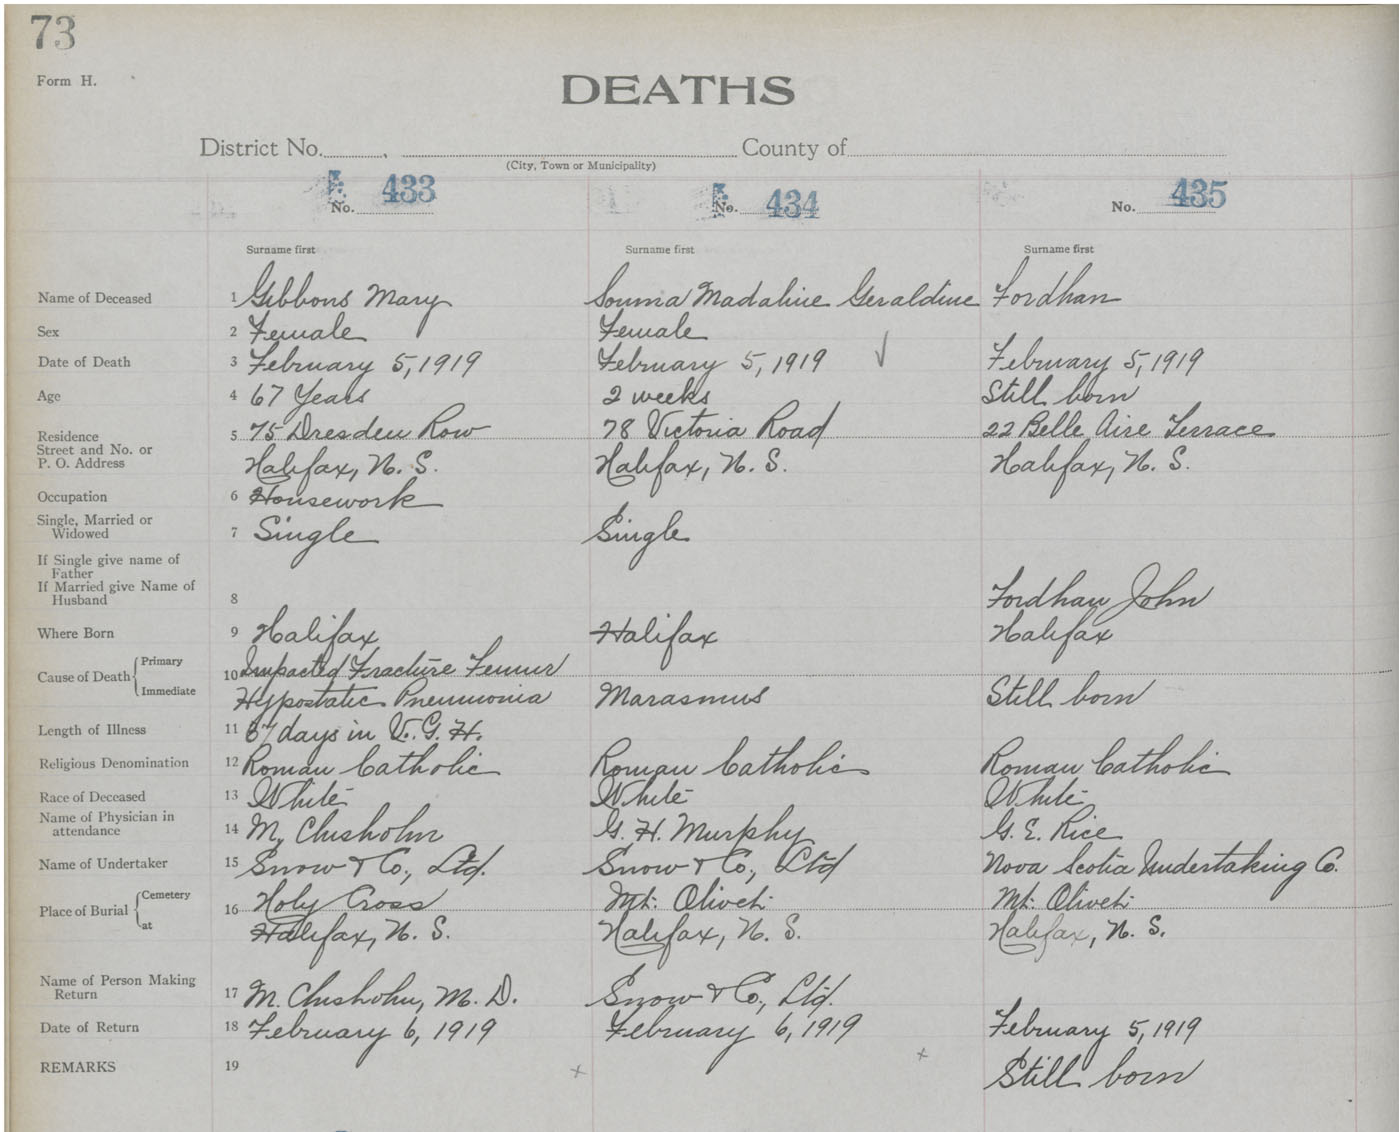 73
Form H.
DEATHS
District No. , County of
(City, Town or Municipality)
No. 433 No. 434 No. 435
Surname first Surname first Surname first
Name of Deceased 1 Gibbons Mary Souma Madaline Geraldine Fordhan
Sex 2 Female Female
Date of Death 3 February 5, 1919 February 5, 1919 ✓ February 5, 1919
Age 4 67 Years 2 weeks Still born
Residence 5 75 Dresden Row 78 Victoria Road 22 Belle Aire Terrace
Street and No. or
P. O. Address Halifax, N. S. Halifax, N. S. Halifax, N. S.
Occupation 6 Housework
Single, Married or
Widowed 7 Single Single
If Single give name of
Father
If Married give Name of
Husband 8 Fordhan John
Where Born 9 Halifax Halifax Halifax
Cause of Death Primary 10 Impacted Fracture Femur
Immediate Hypostatic Pneumonia Marasmus Still born
Length of Illness 11 days in V. G. H.
Religious Denomination 12 Roman Catholic Roman Catholic Roman Catholic
Race of Deceased 13 White White White
Name of Physician in
attendance 14 M, Chisholm G. H. Murphy G. E. Rice
Name of Undertaker 15 Snow & Co., Ltd. Snow & Co., Ltd Nova Scotia Undertaking Co.
Place of Burial Cemetery 16 Holy Cross Mt. Olivet Mt. Olivet
at Halifax, N. S. Halifax, N. S. Halifax, N. S.
Name of Person Making
Return 17 M. Chisholm, M. D. Snow & Co., Ltd.
Date of Return 18 February 6, 1919 February 6, 1919 February 5, 1919
REMARKS 19 x x Still born